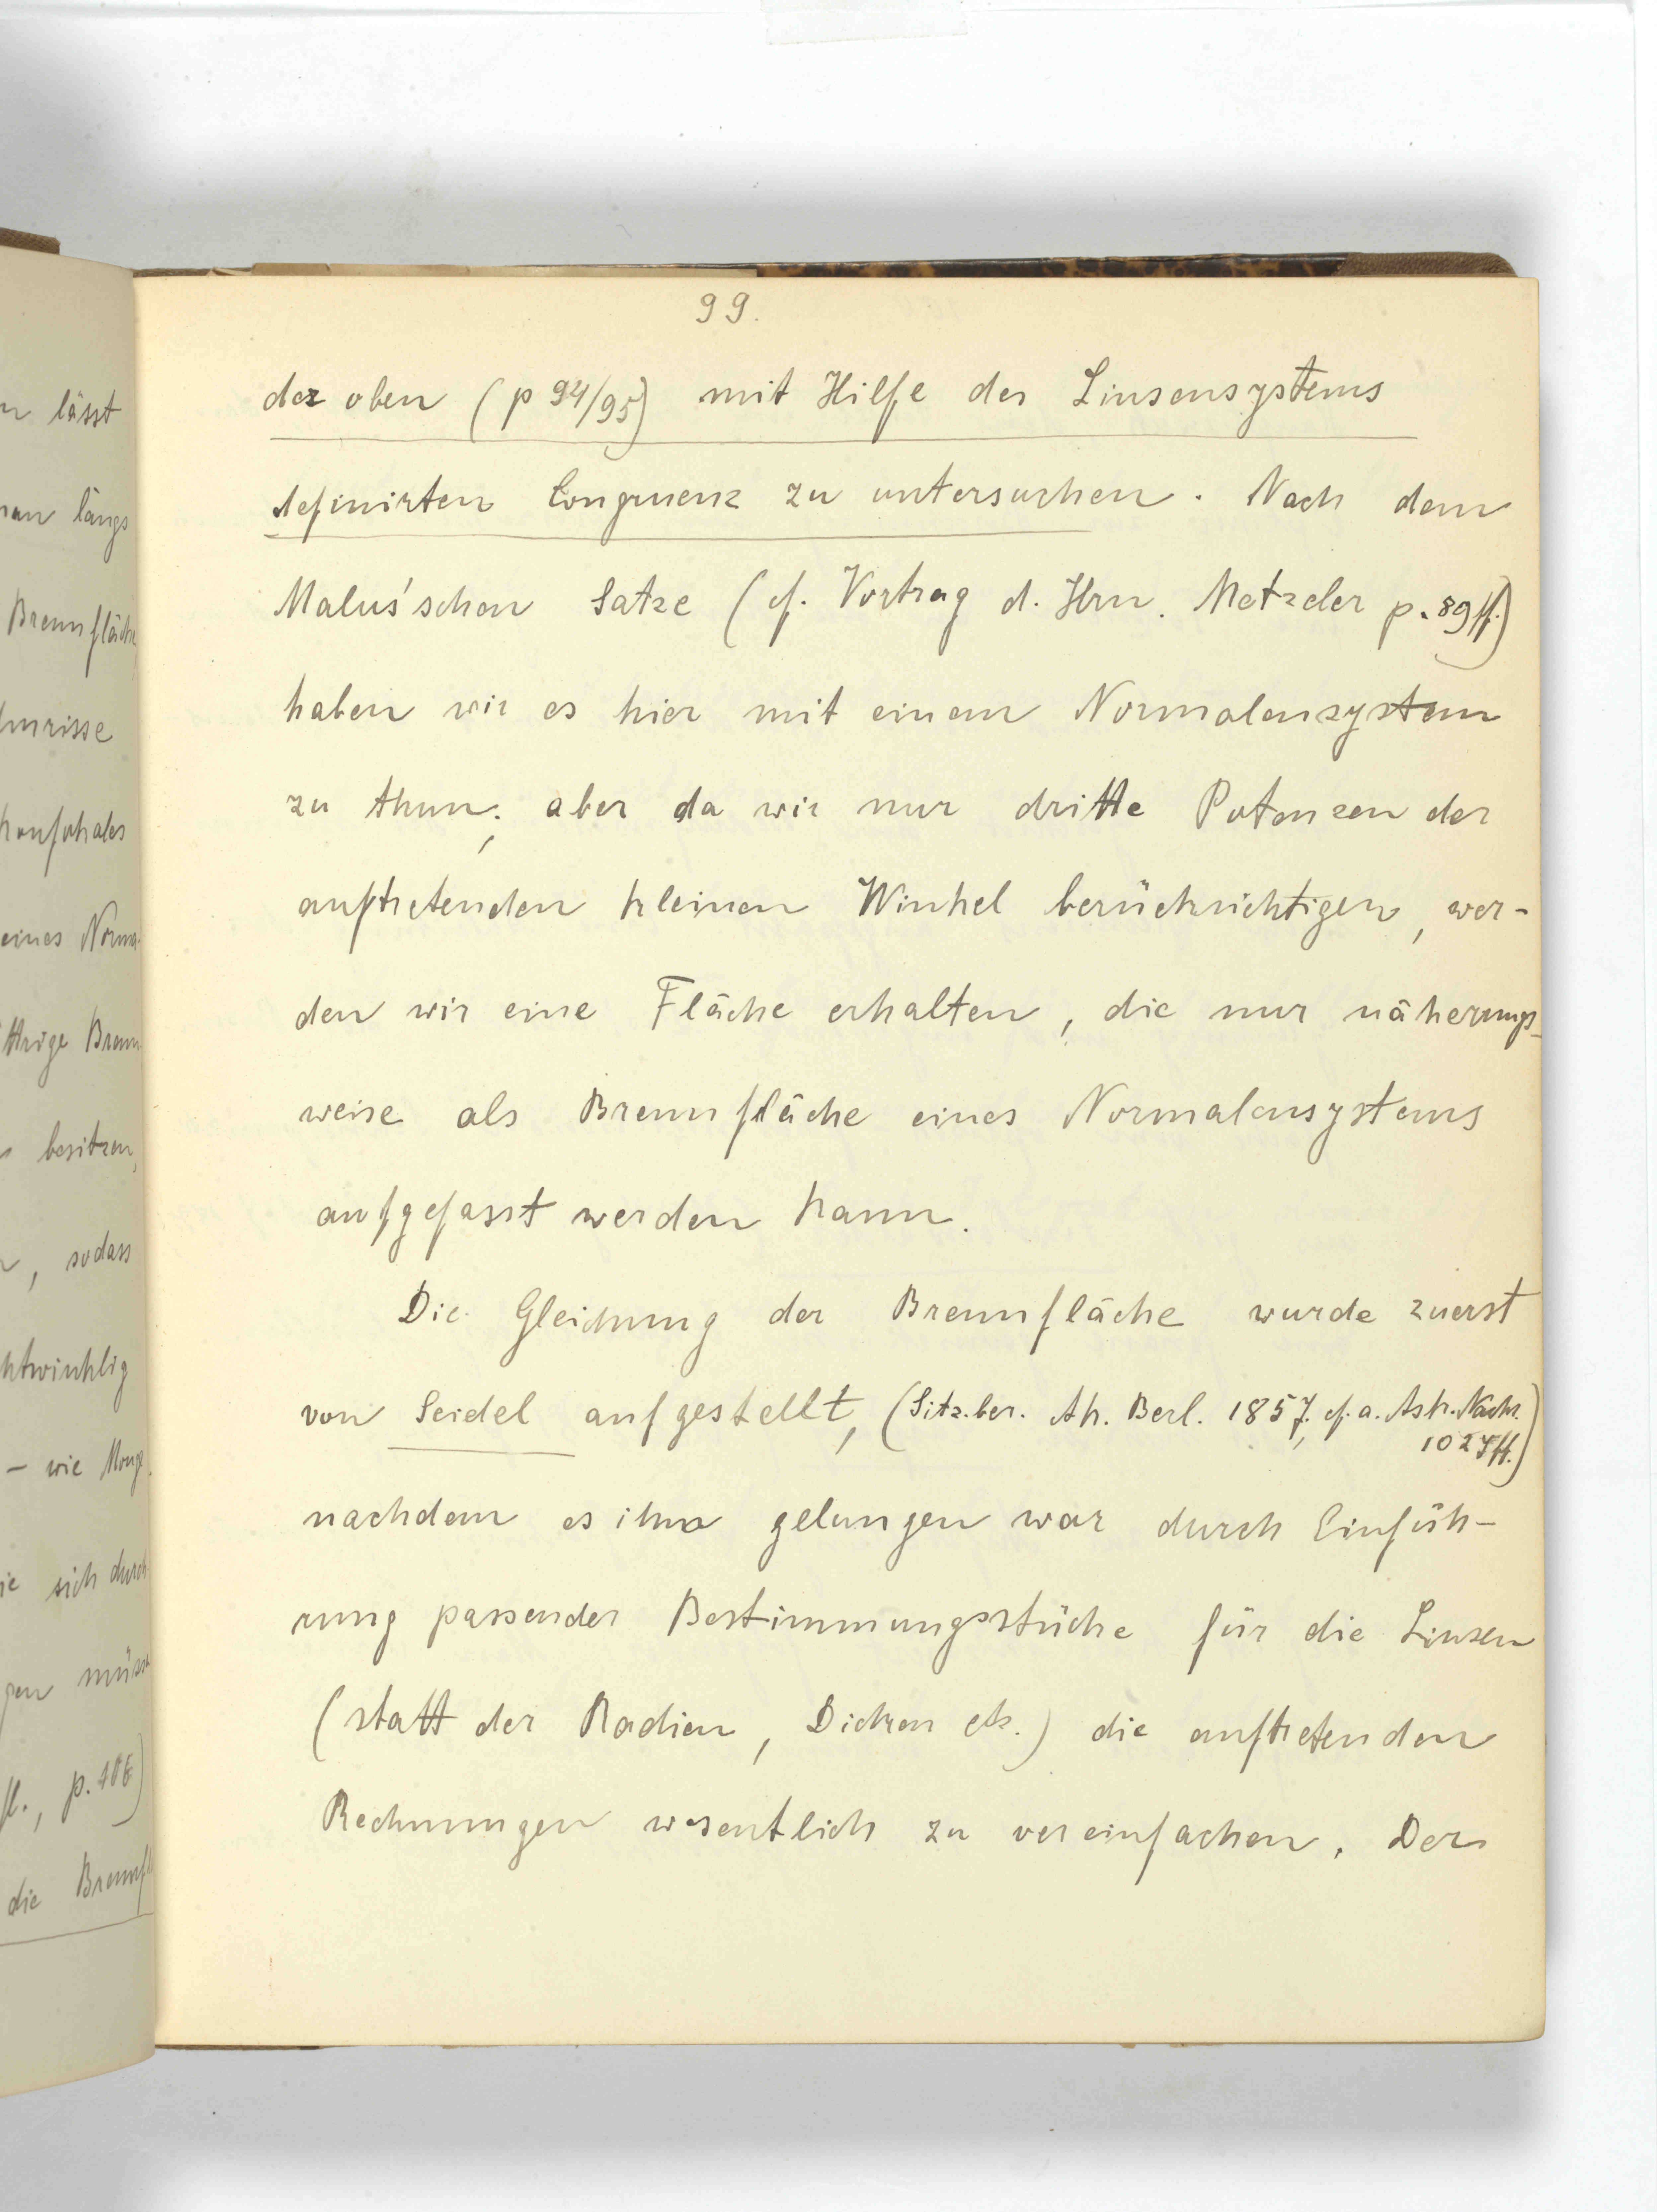 n lässt
man längs
Brennfläche
konfokales
eines Norma-
besitzen,
, sodass
– wie Monge
sich durch
die Brennfl
99.
der oben (p 94/95) mit Hilfe des Linsensystems
definirten Congruenz zu untersuchen. Nach dem
Malus'schen Satze (cf. Vortrag d. Hrn. Metzeler p. 89 ff.)
haben wir es hier mit einem Normalensystem
zu thun; aber da wir nur dritte Potenzen der
auftretenden kleinen Winkel berücksichtigen, wer-
den wir eine Fläche erhalten, die nur näherungs-
weise als Brennfläche eines Normalensystems
aufgefasst werden kann.
Die Gleichung der Brennfläche wurde zuerst
von Seidel aufgestellt, (Sitz.ber. Ak. Berl. 1857, cf. a. Astr. Nachr.
1027ff.)
nachdem es ihm gelungen war durch Einfüh-
rung passender Bestimmungsstücke für die Linsen
(statt der Radien, Dicken etc.) die auftretenden
Rechnungen wesentlich zu vereinfachen. Der